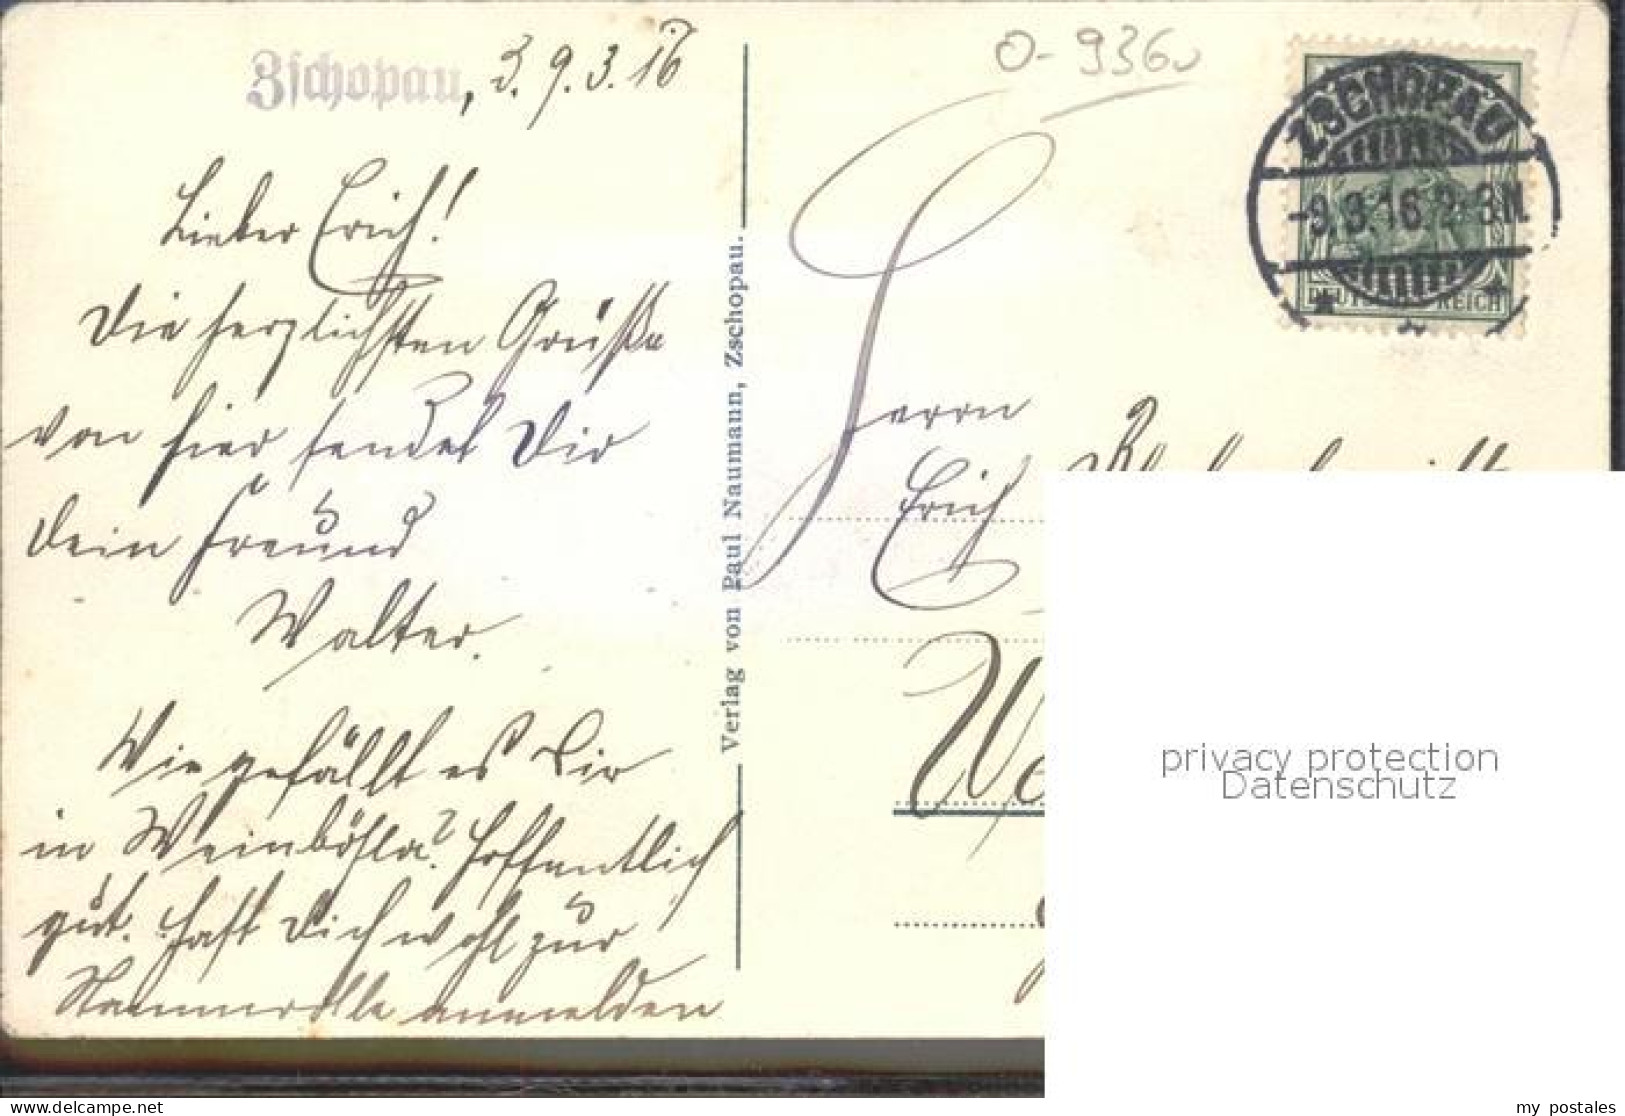 Zschopau, d. 9.3.16
Lieber Erich!
Die herzlichsten Grüße
von hier sendet Dir
Dein Freund
Walter.
Wie gefällt es Dir
in Weinböhla? Hoffentlich
gut. Hast Dich wohl zur
anmelden
Verlag von Paul Naumann, Zschopau.
O-9360
ZSCHOPAU
-9.3.16.2-3N.
DEUTSCHES REICH
Herrn
Erich
privacy protection
Datenschutz
my postales
hinter der Marke / delcampe.net